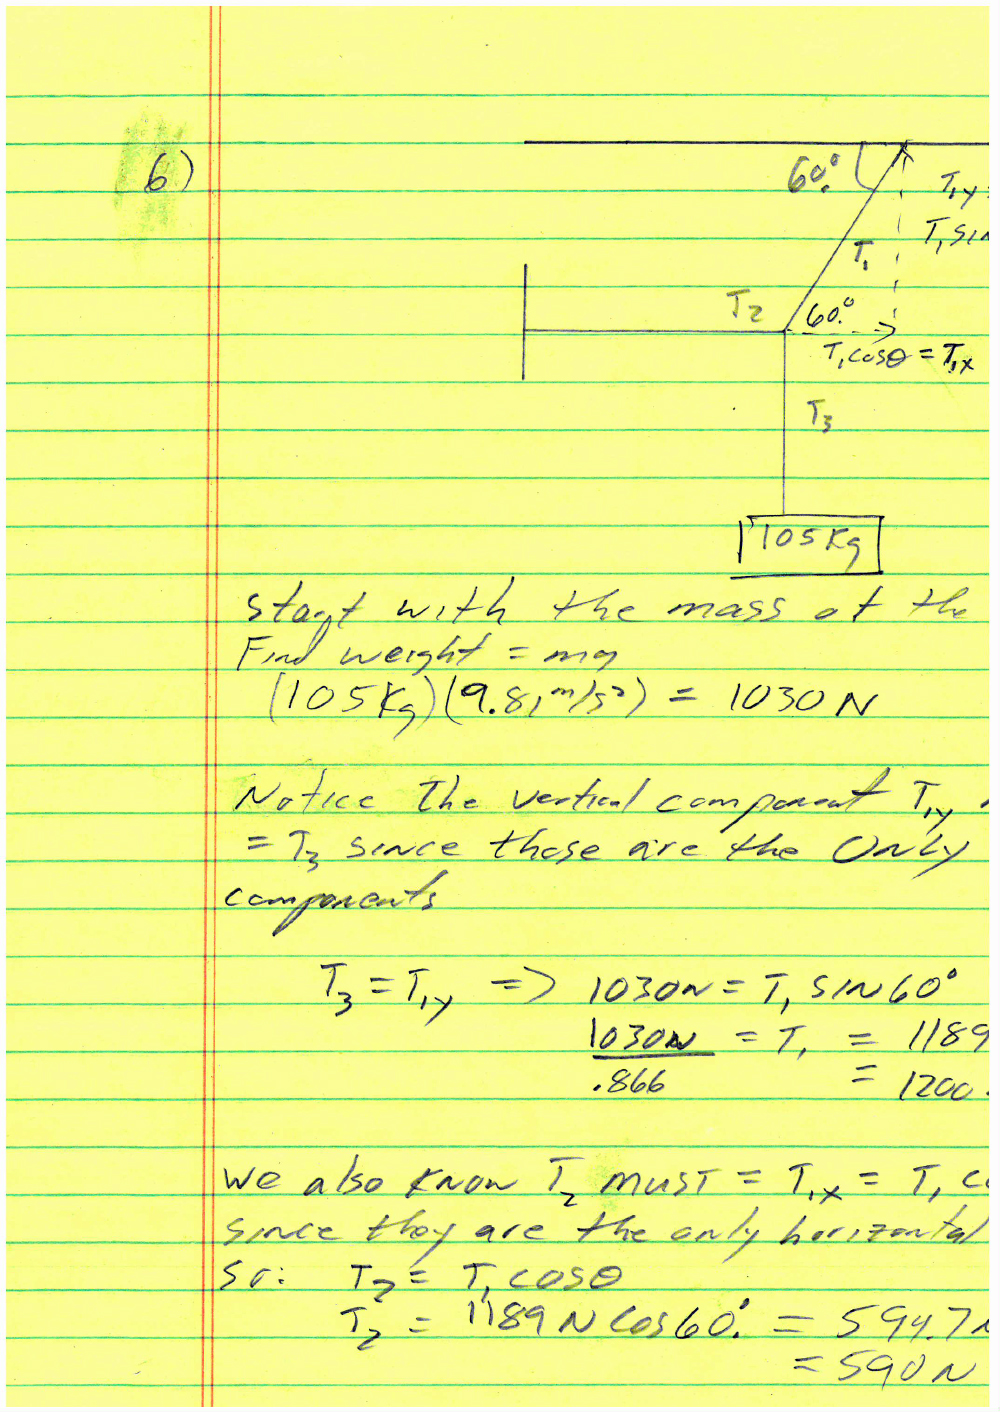 6)
60.°
T₁y
T₁ sin
T₁
T₂
60.°
T₁ cosθ = T₁x
T₃
105 Kg
Start with the mass at the
Find weight = mg
(105 Kg)(9.81 m/s²) = 1030 N
Notice the vertical component T₁y
= T₃ since those are the only
components
T₃ = T₁y => 1030N = T₁ SIN 60°
1030N = T₁ = 1189
.866 = 1200.
We also know T₂ must = T₁x = T₁ c
since they are the only horizontal
So: T₂ = T₁ cosθ
T₂ = 1189 N Cos 60.° = 594.7 N
= 590 N